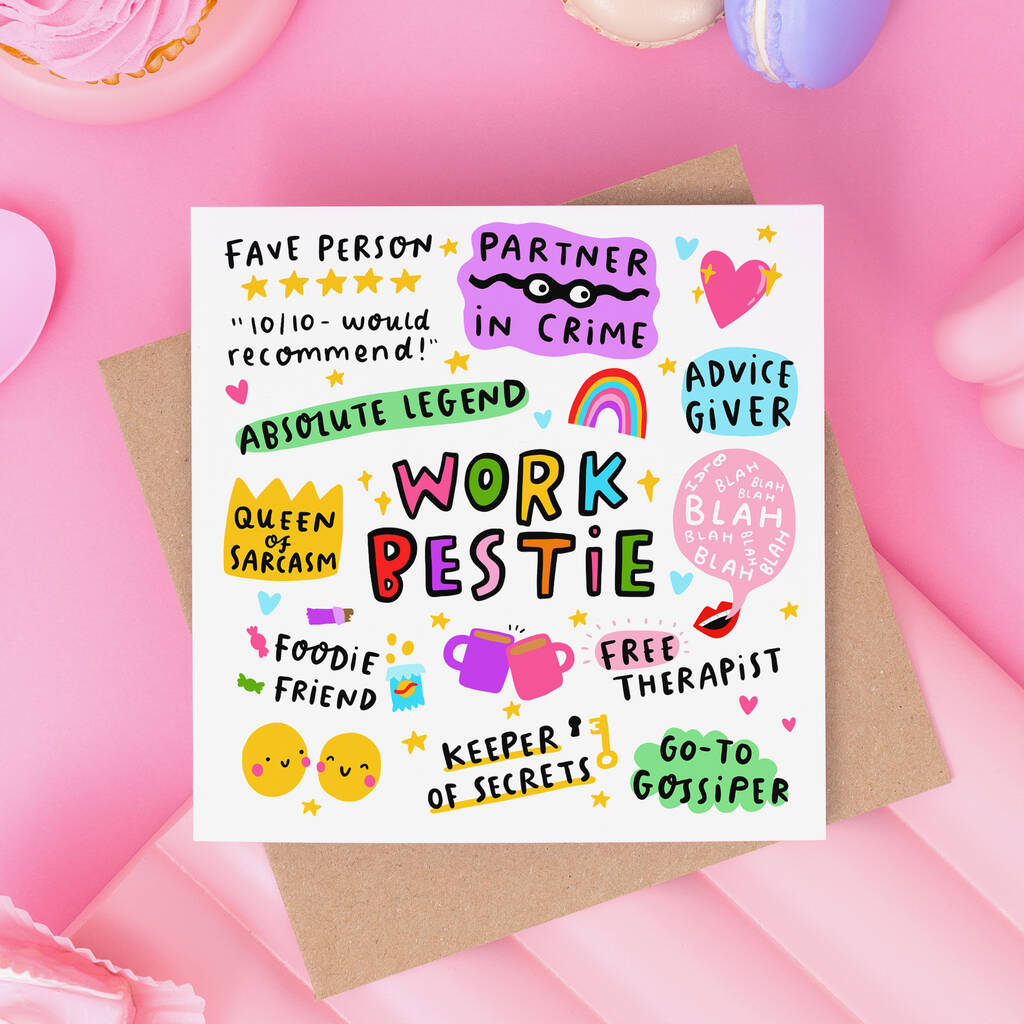 FAVE PERSON
"10/10 - would
recommend!"
PARTNER
iN CRiME
ADViCE
GiVER
ABSOLUTE LEGEND
WORK
BESTiE
QUEEN
OF
SARCASM
BLAH
BLAH
BLAH
BLAH
BLAH
BLAH
BLAH
BLAH
BLAH
FOODiE
FRiEND
FREE
THERAPiST
KEEPER
OF SECRETS
GO-TO
GOSSiPER